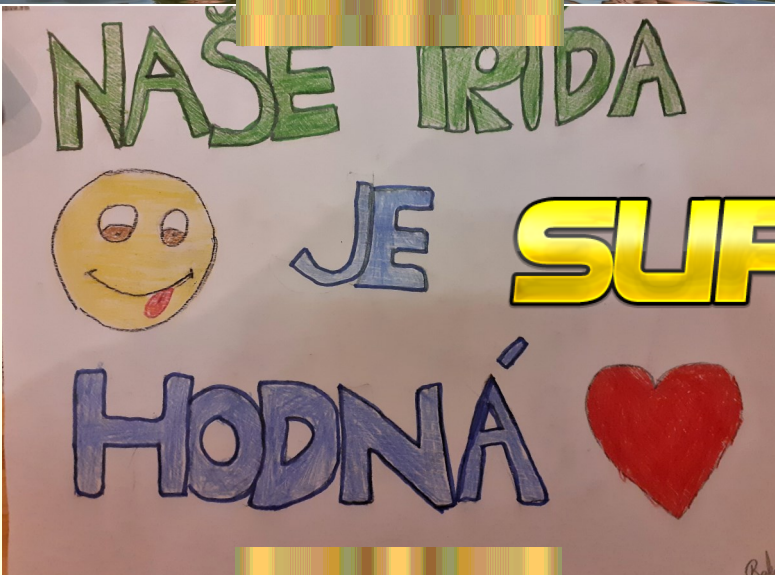 NAŠE TŘÍDA
JE SUP
HODNÁ